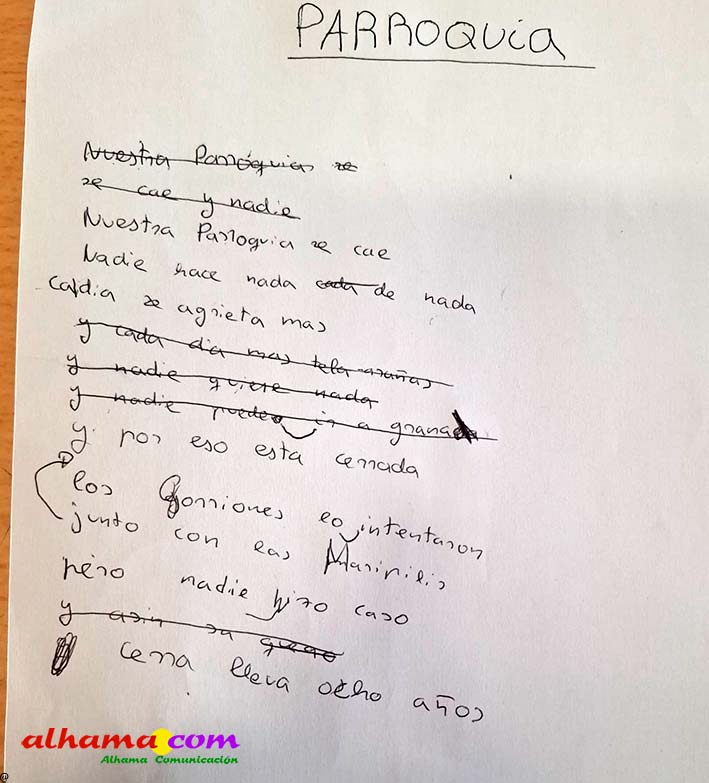 PARROQUIA
Nuestra Parróquia se
se cae y nadie
Nuestra Parroquia se cae
Nadie hace nada cada de nada
Cajdia se agrieta mas
y cada dia mas tela-arañas
y nadie quiere nada
y nadie puedeo ir a granada
y por eso esta cerrada
los Gorriones lo intentaron
junto con las Maripilis
pero nadie hizo caso
y asin sa quedo
cerra lleva ocho años
alhama.com
Alhama Comunicación
@